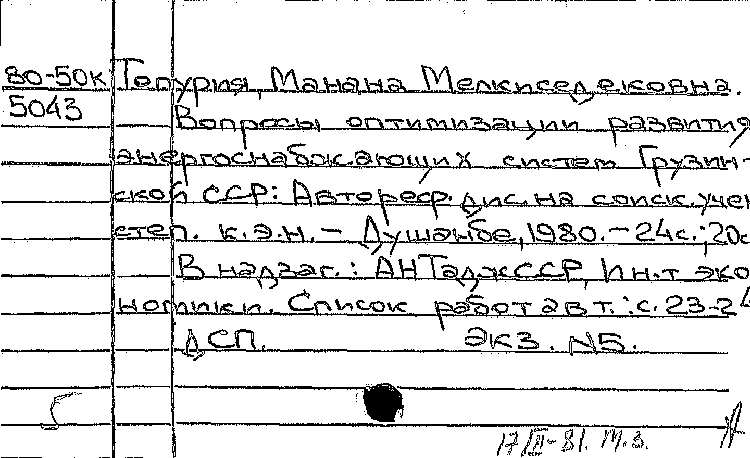 80-50к Топурия, Манана Мелкиседековна.
5043 Вопросы оптимизации развития
энергоснабжающих систем Грузин-
ской ССР: Автореф. дис. на соиск. учен
степ. к.э.н. – Душанбе, 1980. – 24с.; 20с
В надзаг.: АН ТаджССР, Ин-т эко
номики. Список работ авт.: с. 23-24
ДСП. Экз. №5.
17/II-81. М.З.